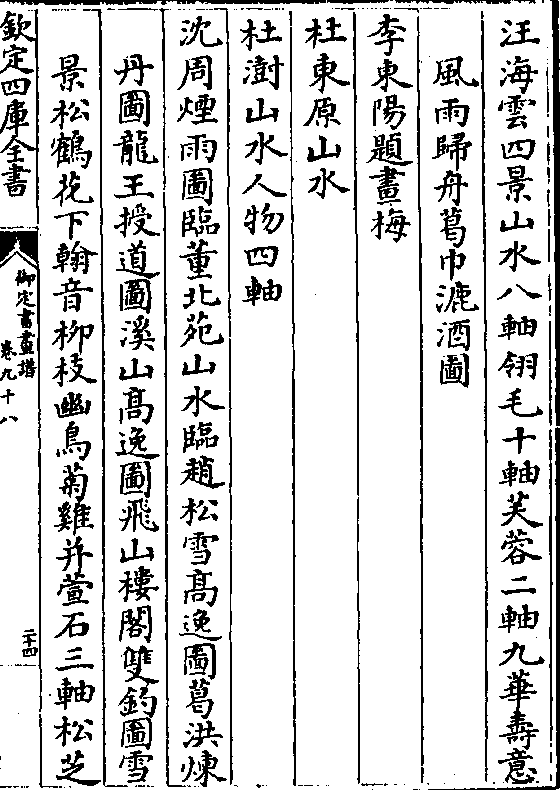 汪海雲四景山水八軸翎毛十軸芙蓉二軸九華壽意
風雨歸舟葛巾漉酒圖
李東陽題畫梅
杜東原山水
杜澍山水人物四軸
沈周煙雨圖臨董北苑山水臨趙松雪髙逸圖葛洪煉
丹圖龍王授道圖溪山髙逸圖飛山樓閣雙鈎圖雪
景松鶴花下翰音柳枝幽鳥菊雞并萱石三軸松芝
欽定四庫全書
御定書畫譜
卷九十八
二十四